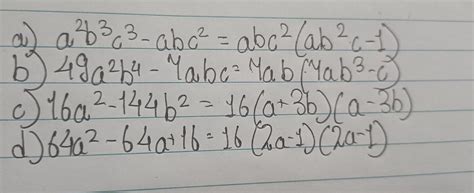 a) a²b³c³ - abc² = abc²(ab²c-1)
b) 49a²b⁴ - 7abc = 7ab(7ab³-c)
c) 16a² - 144b² = 16(a+3b)(a-3b)
d) 64a² - 64a + 16 = 16(2a-1)(2a-1)